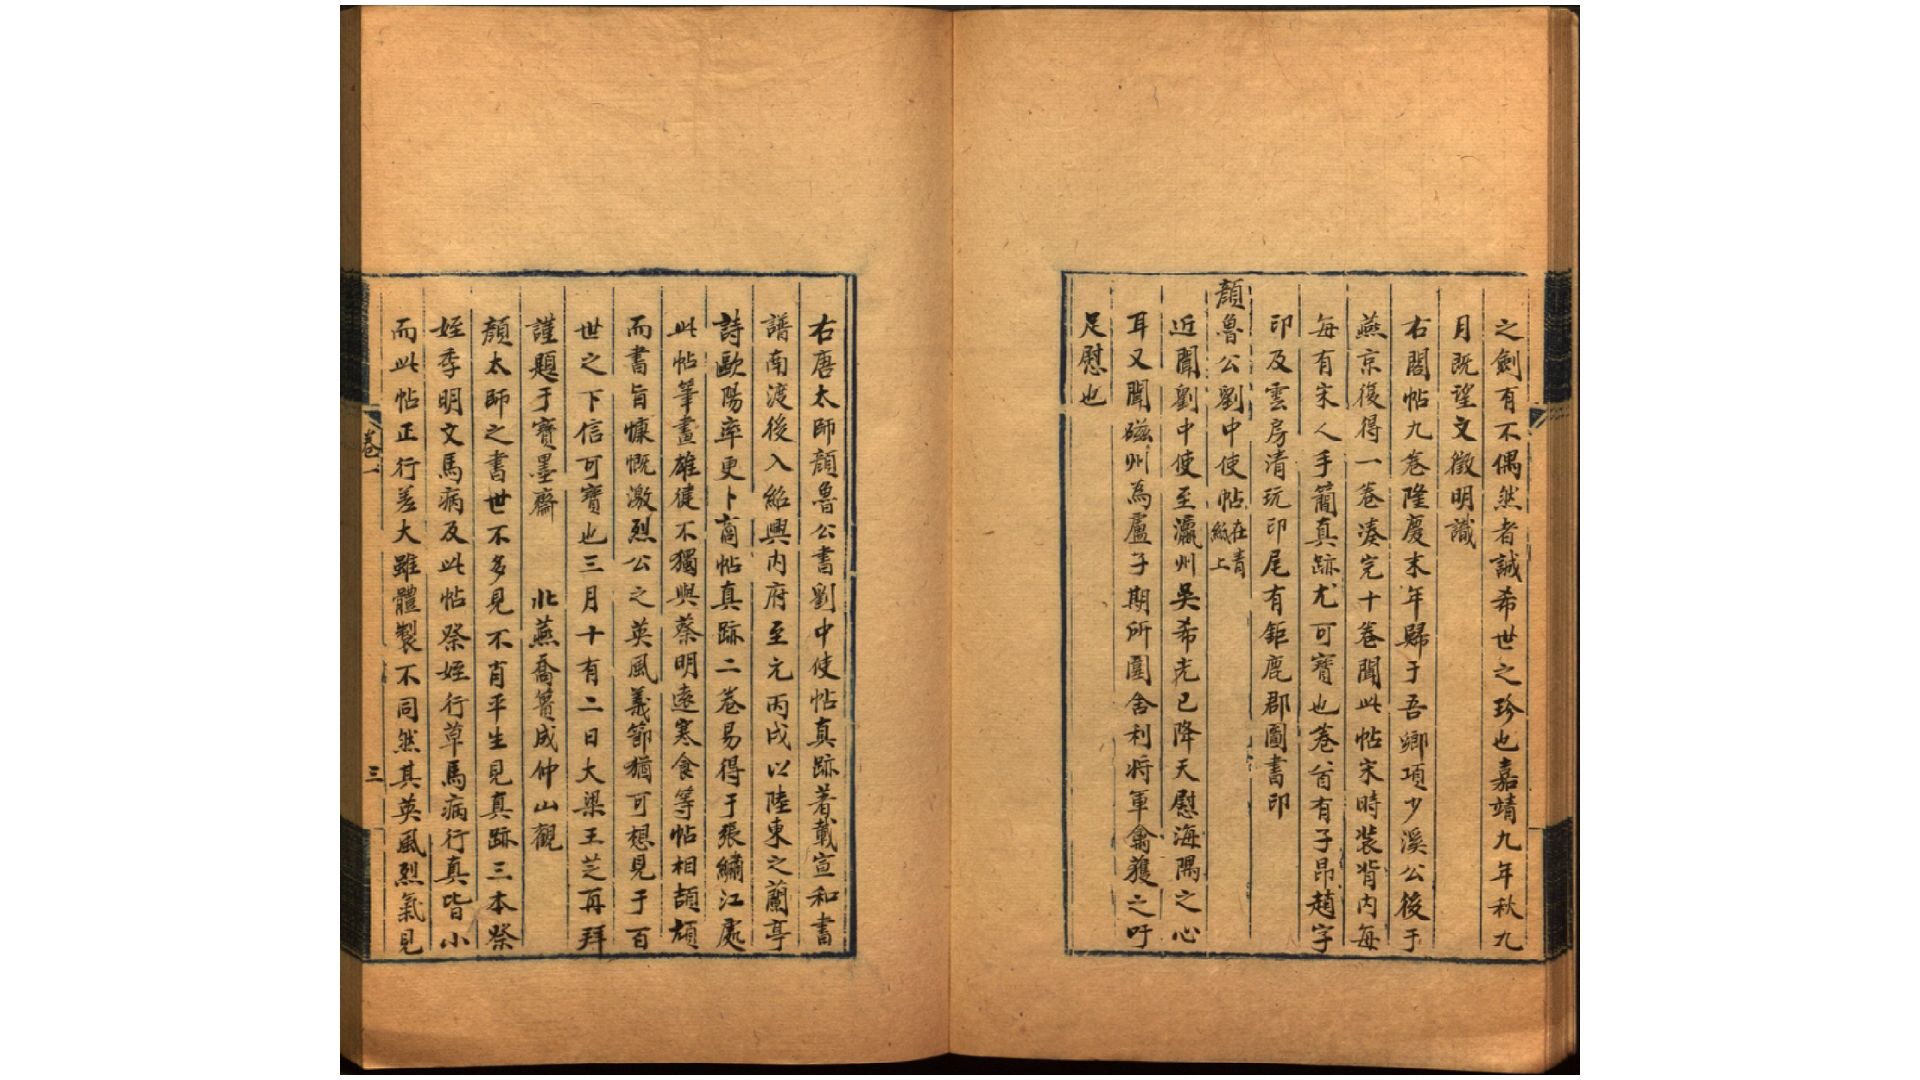 之劍有不偶然者誠希世之珍也嘉靖九年秋九
月既望文徵明識
右閣帖九卷隆慶末年歸于吾鄉項少溪公後于
燕京復得一卷湊完十卷聞此帖宋時裝背內每
每有宋人手簡真跡尤可寶也卷首有子昂趙字
印及雲房清玩印尾有鉅鹿郡圖書印
顏魯公劉中使帖在青絲上
近聞劉中使至瀛州吳希光已降天慰海隅之心
耳又聞磁州為盧子期所圍舍利將軍禽獲之吁
足慰也
右唐太師顏魯公書劉中使帖真跡著載宣和書
譜南渡後入紹興內府至元丙戌以陸東之蘭亭
詩歐陽率更卜商帖真跡二卷易得于張繡江處
此帖筆畫雄健不獨與蔡明遠寒食等帖相頡頏
而書旨慷慨激烈公之英風義節猶可想見于百
世之下信可寶也三月十有二日大梁王芝再拜
謹題于寶墨齋　北燕喬簣成仲山觀
顏太師之書世不多見不肖平生見真跡三本祭
姪季明文馬病及此帖祭姪行草馬病行真皆小
而此帖正行差大雖體製不同然其英風烈氣見
卷一
三